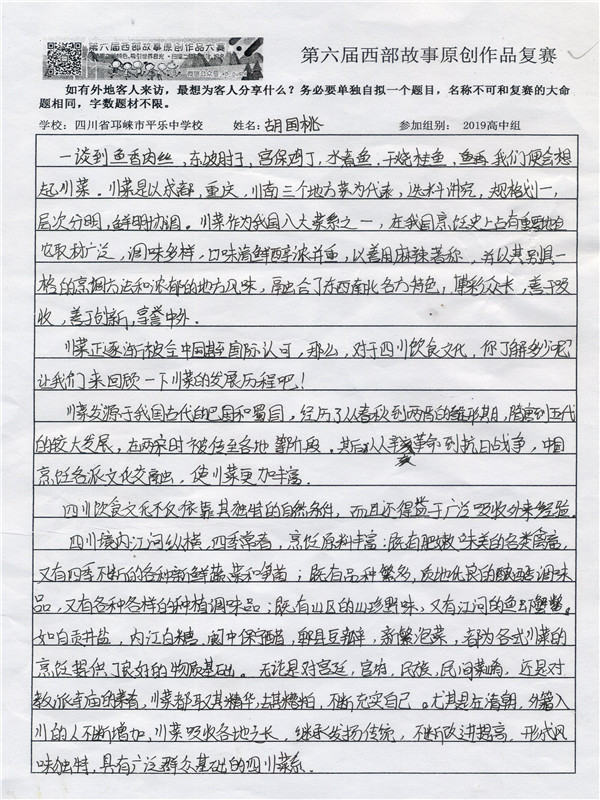 第六届西部故事原创作品大赛
第六届西部故事原创作品复赛
如有外地客人来访，最想为客人分享什么？务必要单独自拟一个题目，名称不可和复赛的大命
题相同，字数题材不限。
学校：四川省邛崃市平乐中学校 姓名：胡国桃 参加组别：2019高中组
一谈到鱼香肉丝，东坡肘子，宫保鸡丁，水煮鱼，干烧桂鱼，鱼 我们便会想
起川菜。川菜是以成都，重庆，川南三个地方菜为代表，选料讲究，规格划一，
层次分明，鲜明协调。川菜作为我国八大菜系之一，在我国烹饪史上占有重要地
位取材广泛，调味多样，口味清鲜醇浓并重，以善用麻辣著称，并以其别具一
格的烹调方法和浓郁的地方风味，融合了东西南北各方特色，博彩众长，善于吸
收，善于创新，享誉中外。
川菜正逐渐被全中国甚至国际认可，那么，对于四川饮食文化，你了解多少呢
让我们来回顾一下川菜的发展历程吧！
川菜发源于我国古代的巴国和蜀国，经历了从春秋到两晋的雏形期，隋唐到五代
的较大发展，在两宋时被传至各地等阶段。其后从辛亥革命到抗日战争，中国
烹饪各派文化交融出，使川菜更加丰富。
四川饮食文化不仅依靠其独特的自然条件，而且还得益于广泛吸收外来经验。
四川境内江河纵横，四季常青，烹饪原料丰富：既有肥嫩味美的各类禽畜，
又有四季不断的各种新鲜蔬菜和笋菌；既有品种繁多，质地优良的酿造调味
品，又有各种各样的种植调味品；既有山区的山珍野味，又有江河的鱼虾蟹鳖。
如自贡井盐，内江白糖，阆中保宁醋，郫县豆瓣，新繁泡菜，都为各式川菜的
烹饪提供了良好的物质基础。无论是对宫廷，官府，民族，民间菜肴，还是对
教派寺庙的菜肴，川菜都取其精华，去其糟粕，不断充实自己。尤其是在清朝，外籍入
川的人不断增加，川菜吸收各地之长，继承发扬传统，不断改进提高，形成风
味独特，具有广泛群众基础的四川菜系。